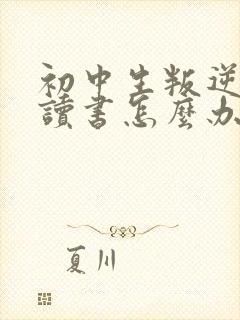 初中生叛逆
讀書怎麼办
夏川